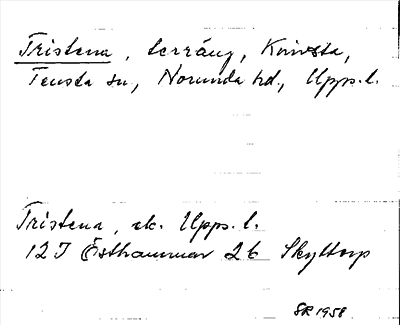 Tristena, terräng, Knivsta,
Tensta sn, Norunda hd., Upps. l.
Tristena, ek. Upps. l.
12I Östhammar 2b Skyttorp
SR 1958